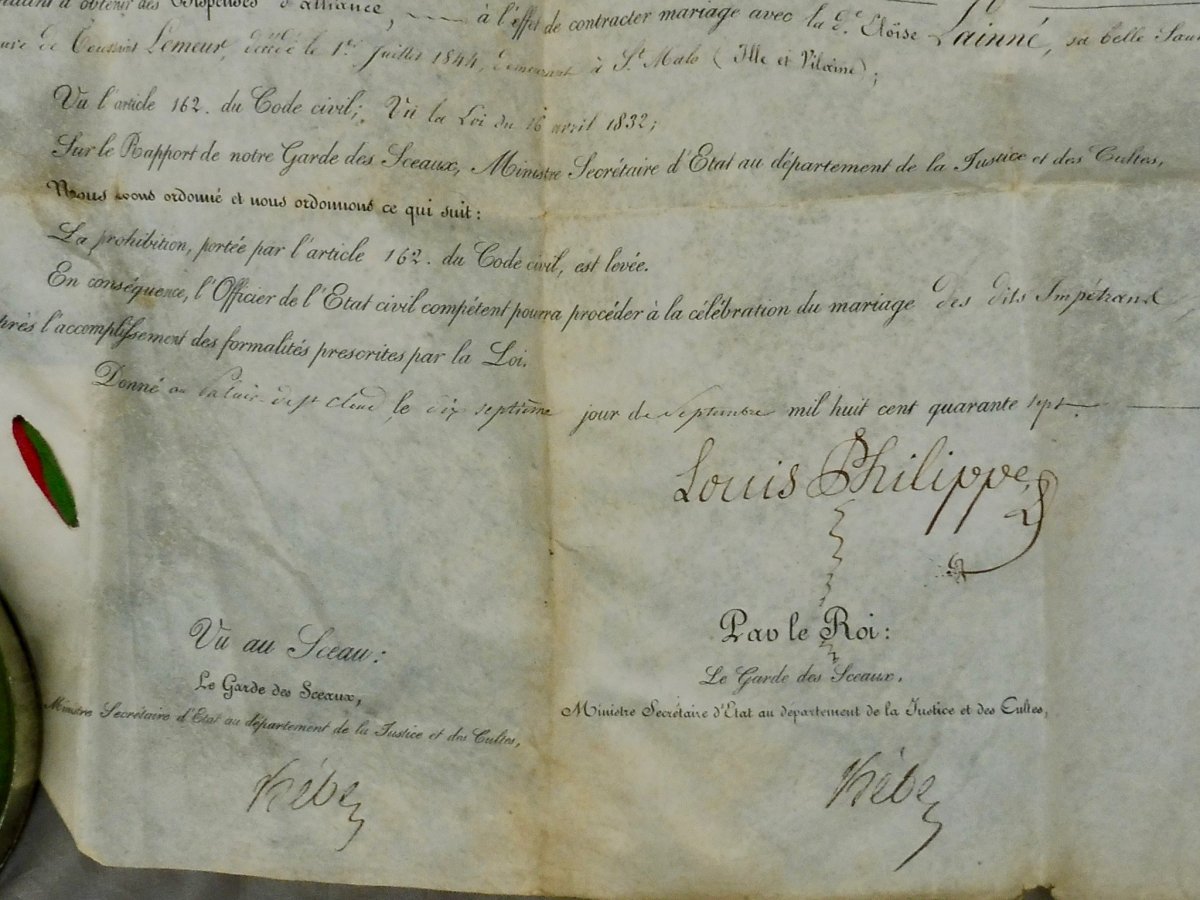 d'obtenir des Dispenses d'alliance, à l'effet de contracter mariage avec la de. Eloïse Lainné, sa belle Sœur
de Toussaint Lemeur, décédé le 1er Juillet 1844, demeurant à St Malo (Ille et Vilaine);
Vu l'article 162. du Code civil; Vu la Loi du 16 avril 1832;
Sur le Rapport de notre Garde des Sceaux, Ministre Secrétaire d'Etat au département de la Justice et des Cultes,
Nous avons ordonné et nous ordonnons ce qui suit:
La prohibition, portée par l'article 162. du Code civil, est levée.
En conséquence, l'Officier de l'Etat civil compétent pourra procéder à la célébration du mariage des dits Impétrans
l'accomplissement des formalités prescrites par la Loi.
Donné au Palais de St Cloud le dix septième jour de Septembre mil huit cent quarante sept.
Louis Philippe
Vu au Sceau:
Le Garde des Sceaux,
Ministre Secrétaire d'Etat au département de la Justice et des Cultes,
Hébe
Par le Roi:
Le Garde des Sceaux,
Ministre Secrétaire d'Etat au département de la Justice et des Cultes,
Hébe